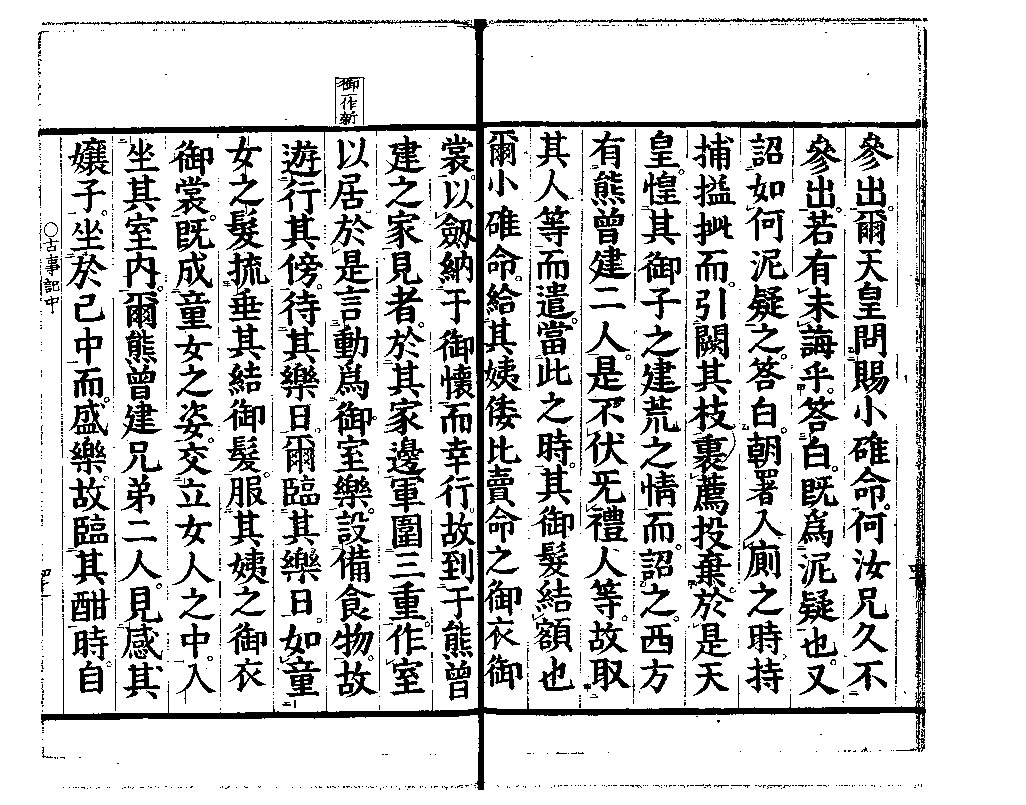 參出。爾天皇問賜小碓命。何汝兄久不
參出。若有未誨乎。答白。既爲泥疑也。又
詔如何泥疑之。答白。朝署入廁之時。持
捕搤批而。引闕其枝裹薦投棄。於是天
皇。惶其御子之建荒之情而。詔之西方
有熊曾建二人。是不伏无禮人等。故取
其人等而遣。當此之時。其御髮結額也
爾小碓命。給其姨倭比賣命之御衣御
裳。以劔納于御懷而幸行。故到于熊曾
建之家見者。於其家邊。軍圍三重。作室
以居。於是言動爲御室樂。設備食物。故
遊行其傍。待其樂日。爾臨其樂日。如童
女之髮。梳垂其結御髮。服其姨之御衣
御裳。既成童女之姿。交立女人之中。入
坐其室內。爾熊曾建兄弟二人。見感其
孃子。坐於己中而。盛樂。故臨其酣時。自
御一作新
○古事記中